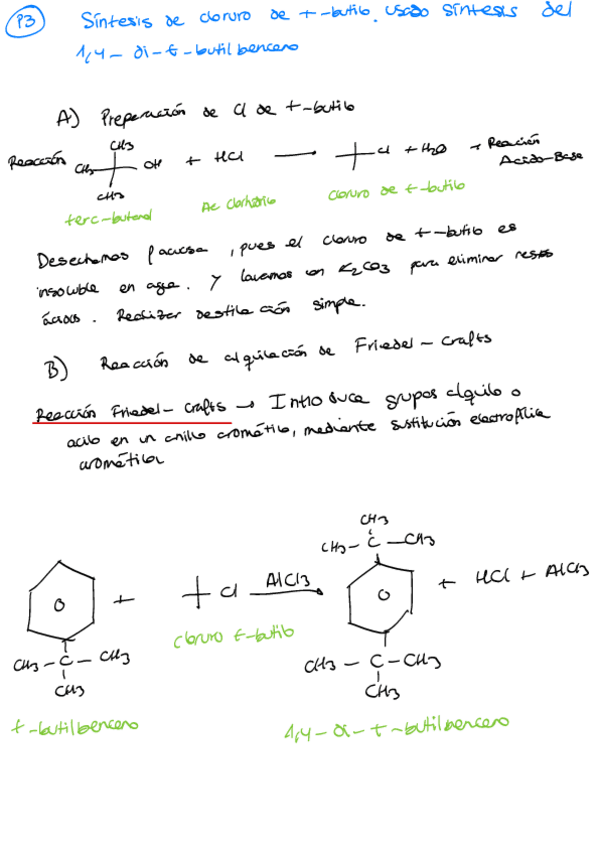 P3 Síntesis de cloruro de t-butilo. usado síntesis del
1,4- di-t-butilbenceno
A) Preparación de Cl de t-butilo
Reacción CH3 CH3 OH CH3 + HCl → Cl + H2O → Reacción
Acido-Base
terc-butanol Ac Clorhídrico Cloruro de t-butilo
Desechamos f acuosa, pues el cloruro de t-butilo es
insoluble en agua. Y lavamos con K2CO3 para eliminar restos
ácidos. Realizar destilación simple.
B) Reacción de alquilación de Friedel-Crafts
Reacción Friedel-Crafts → Introduce grupos alquilo o
acilo en un anillo aromático, mediante sustitución electrofílica
aromática
CH3
CH3-C-CH3
+ Cl AlCl3 + HCl + AlCl3
cloruro t-butilo
CH3-C-CH3 CH3-C-CH3
CH3 CH3
t-butilbenceno 1,4-di-t-butilbenceno